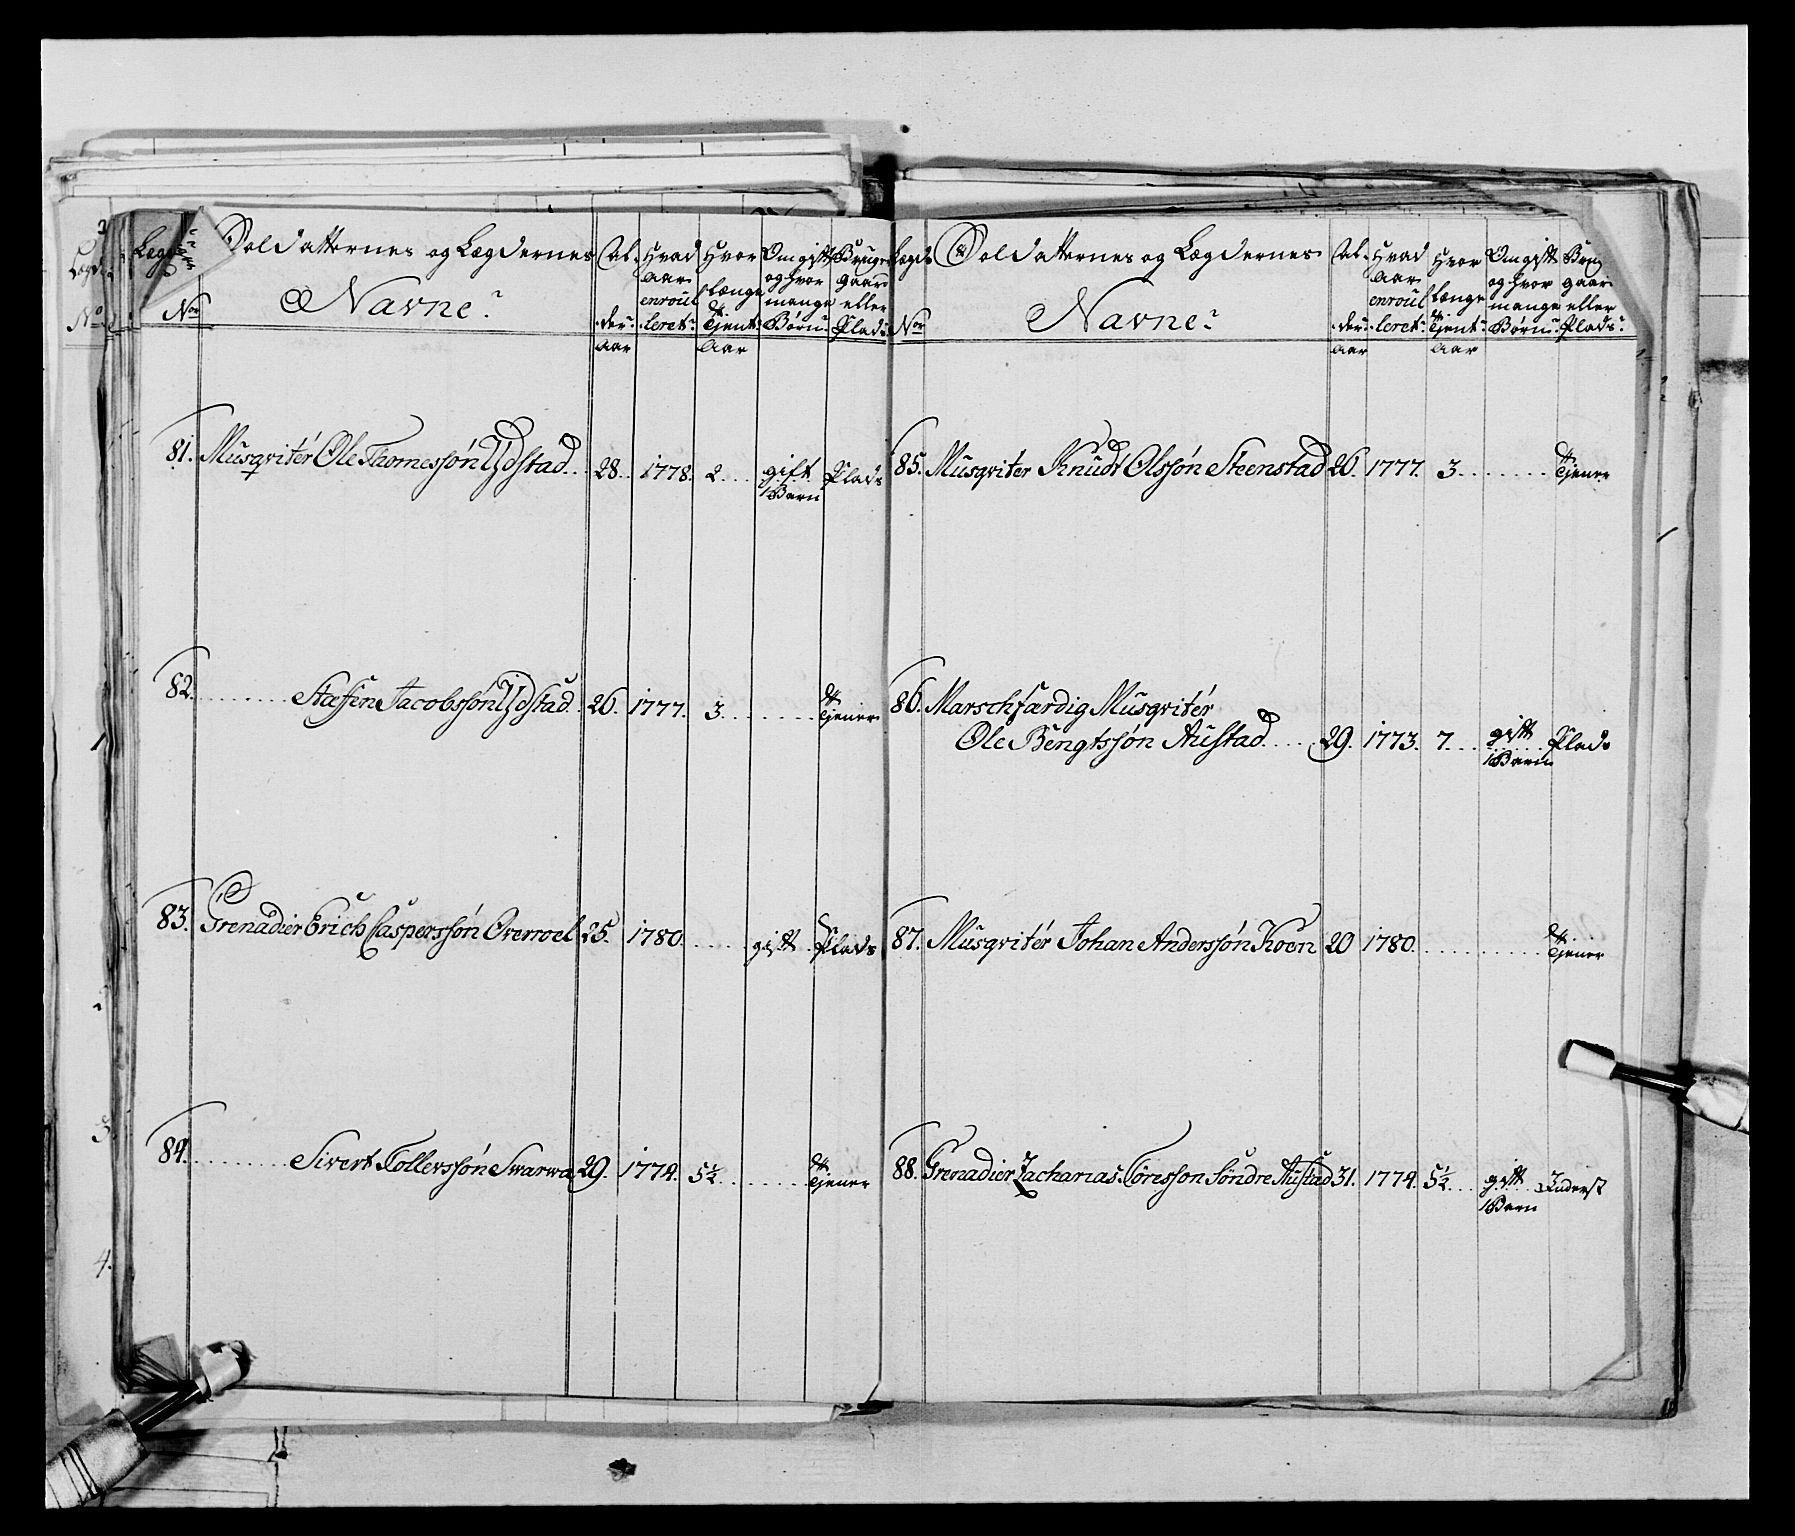 Lægd Nor Soldatternes og Lægdernes Navne: Al- der: Aar Hvad Aar enroul leret: Hvor længe Tjent: Aar Om gift og hvor mange Børn: Bruger Gaard eller Plads:
81. Musqvitér Ole Thomessøn Ydstad 28. 1778. 2 gift Plads
1 Barn
82. Staffen Jacobssøn Ydstad 26. 1777. 3 Tjener
83. Grenadier Erich Casperssøn Overroel 25. 1780. gift Plads
84. Sivert Tollerssøn Swarwa 29. 1774. 5½ Tjener
Lægd: Nor Soldatternes og Lægdernes Navne: Al- der: Aar Hvad Aar enroul leret: Hvor længe Tjent: Aar Om gift og hvor mange Børn: Brug Gaar eller Plads:
85. Musqviter Knudt Olssøn Steenstad 26. 1777. 3 Tjener
86. Marschfærdig Musqvitér
Ole Bengtssøn Austad 29. 1773. 7 gift Plads
1 Barn
87. Musqvitér Johan Anderssøn Koen 20 1780. Tjener
88. Grenadier Zacharias Töresson Söndre Austad 31. 1774. 5½ gift Inderst
1 Barn